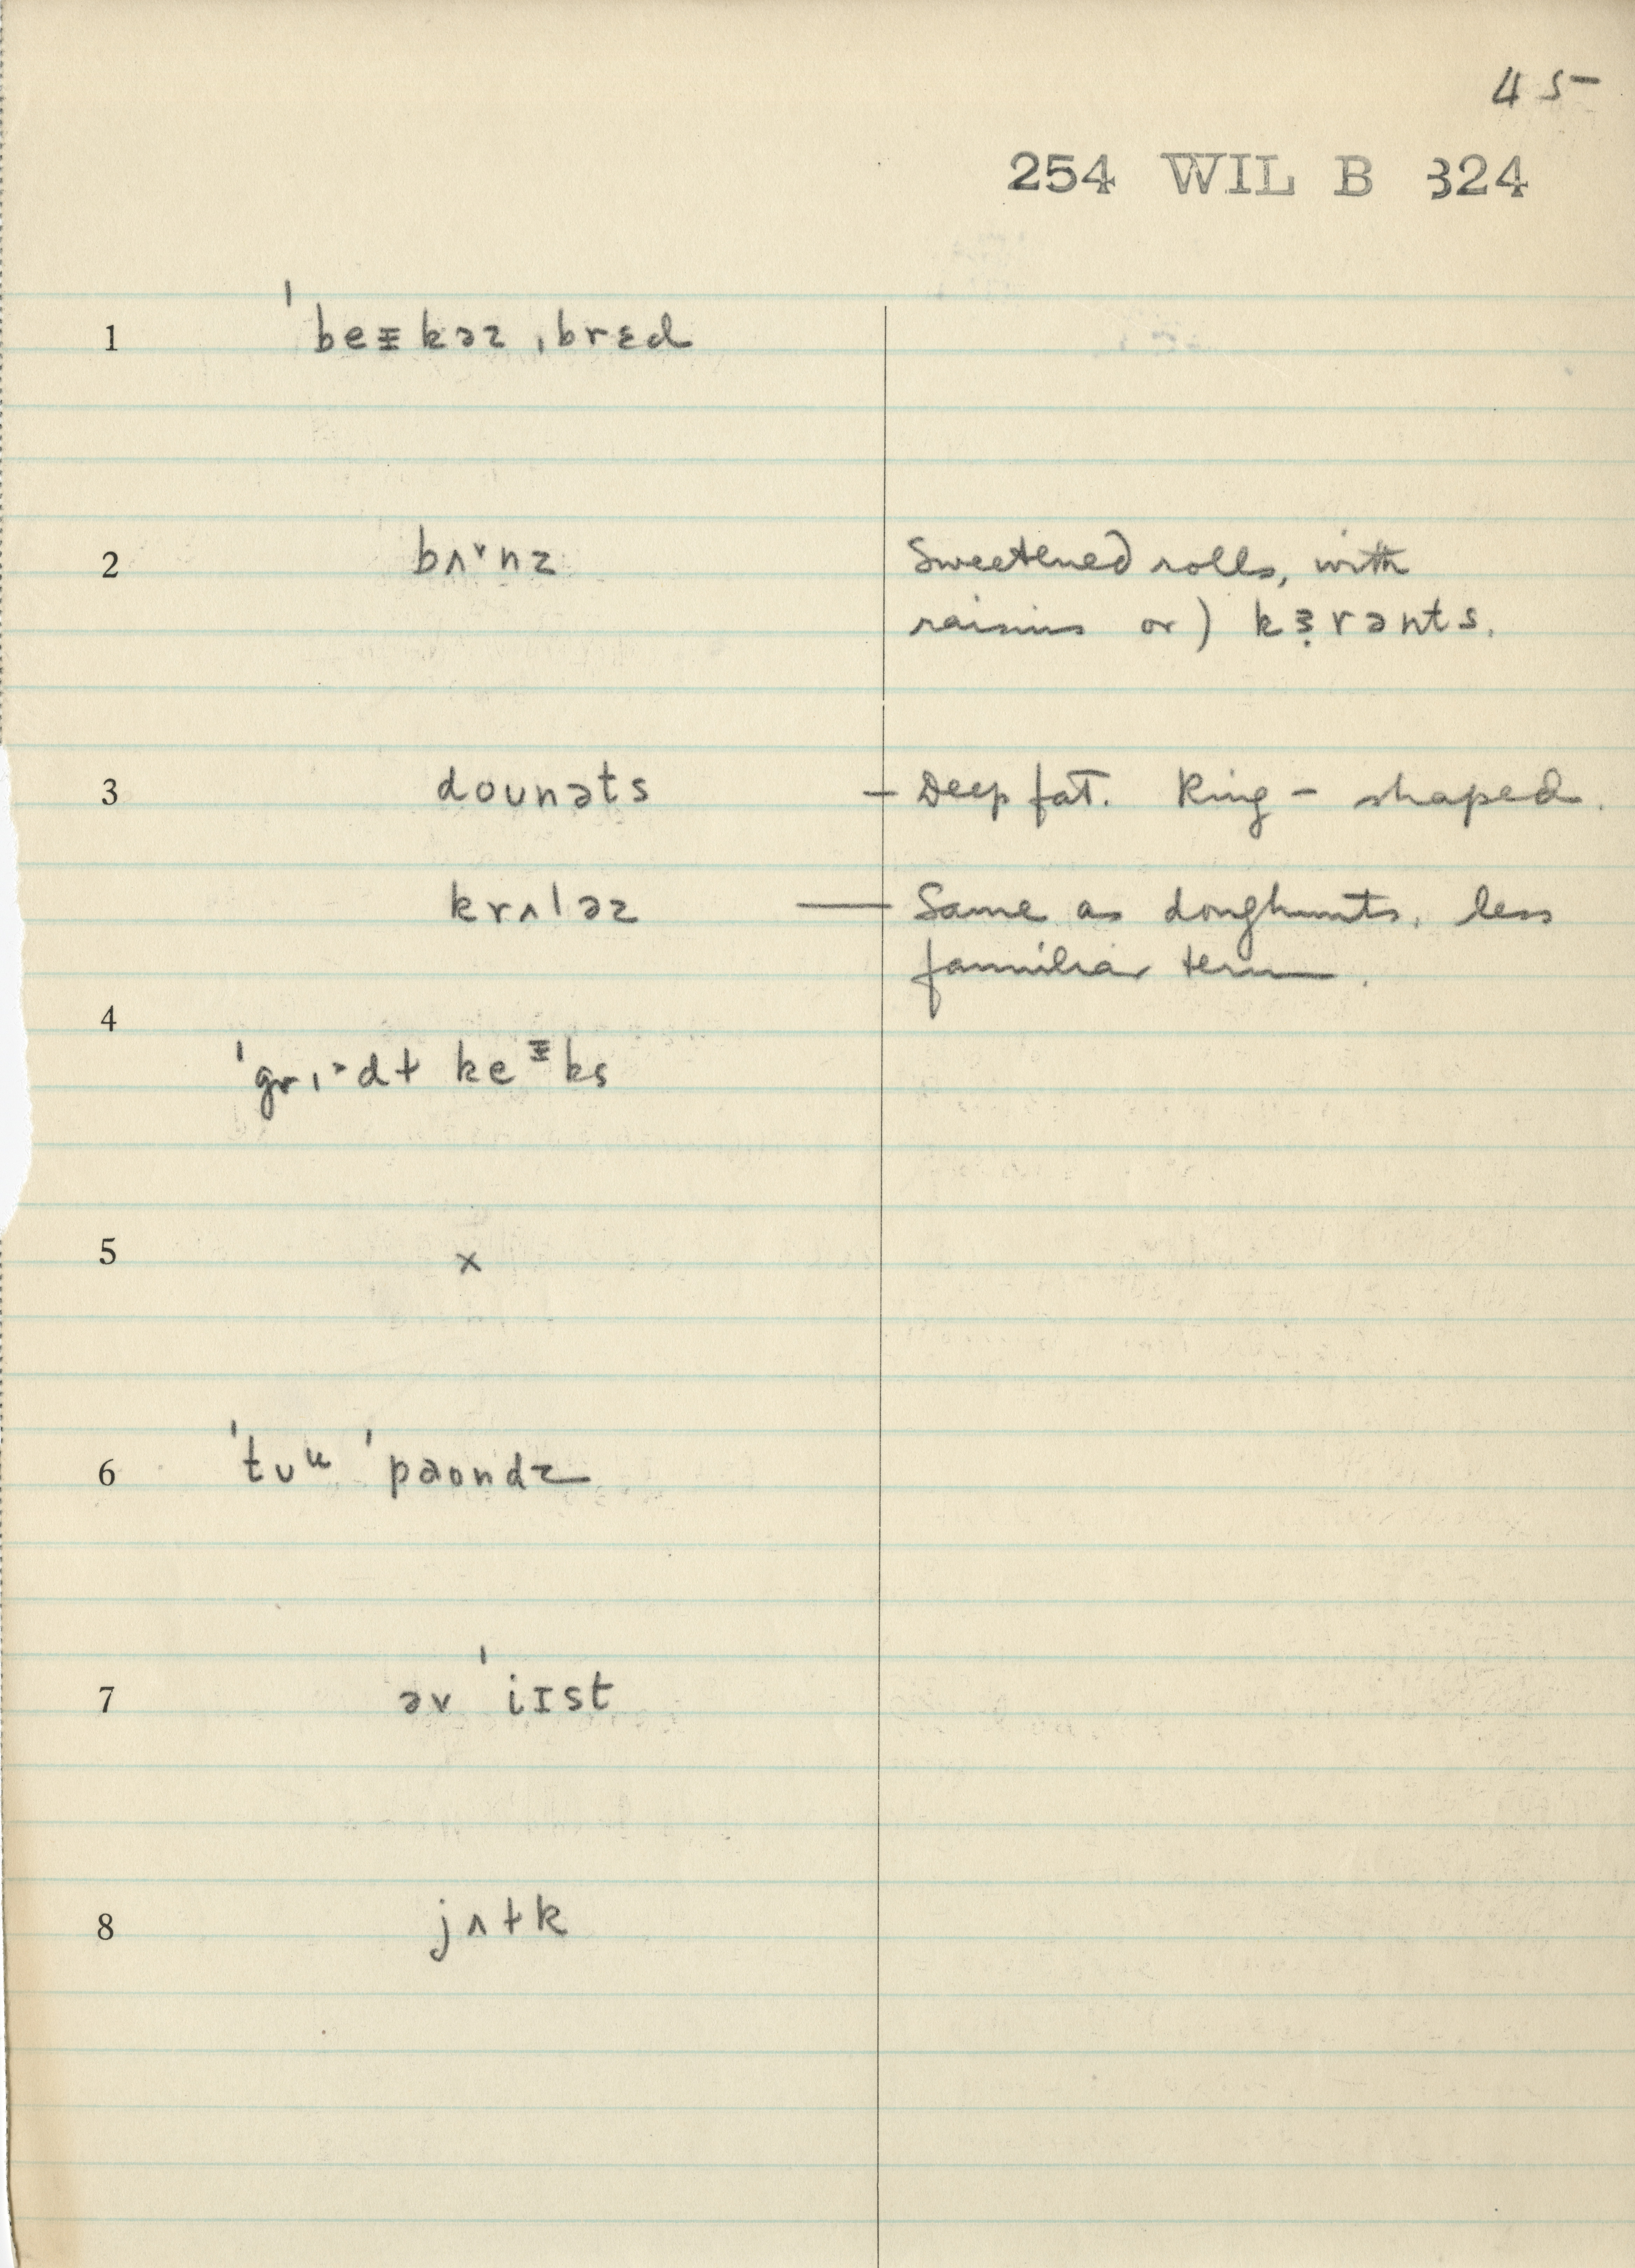 45
254 WIL B 324
1 ˈbeᵻkəz ˌbrɛd
2 bʌ˅nz Sweetened rolls, with
raisins or) kɜrənts.
3 dounəts – Deep fat. Ring-shaped.
krʌləz — Same as doughnuts. less
familiar term.
4
ˈgrɪ˃dɫ keᵻks
5 x
6 ˈtʊᵘ ˈpaʊndz
7 əv ˈiɪst
8 jʌɫk